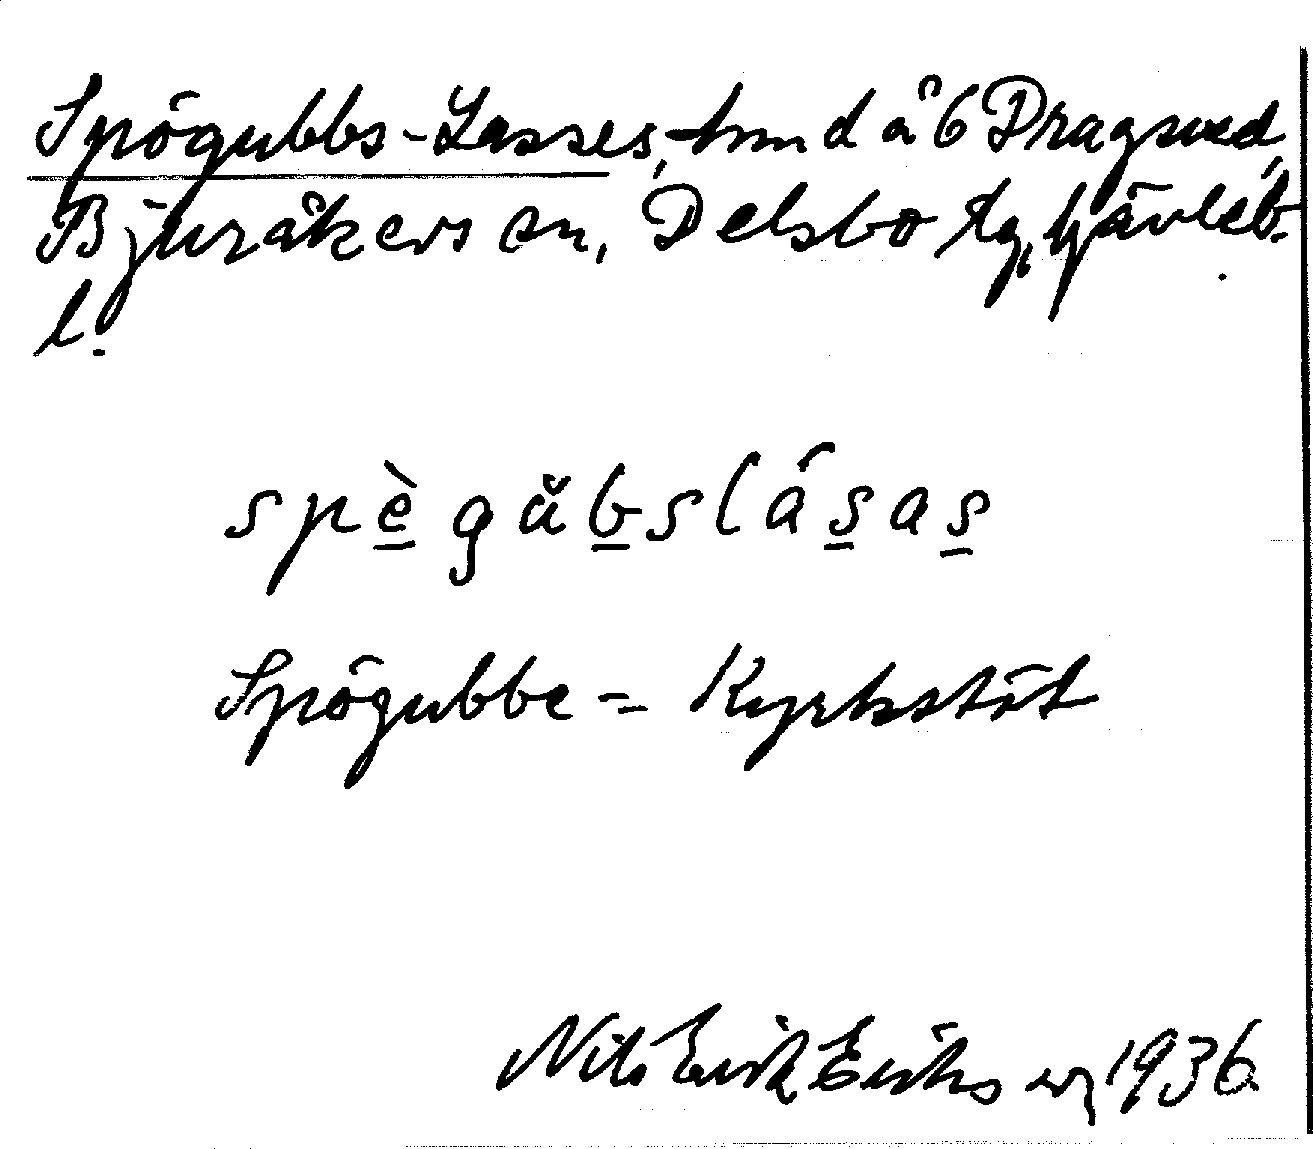 Spögubbs-Lasses, hmd å 6 Dragsved,
Bjuråkers sn, Delsbo tg, Gävleb.
l.
spègǎbslásas
Spögubbe = Kyrkstöt
Nils Erik Eriksson 1936